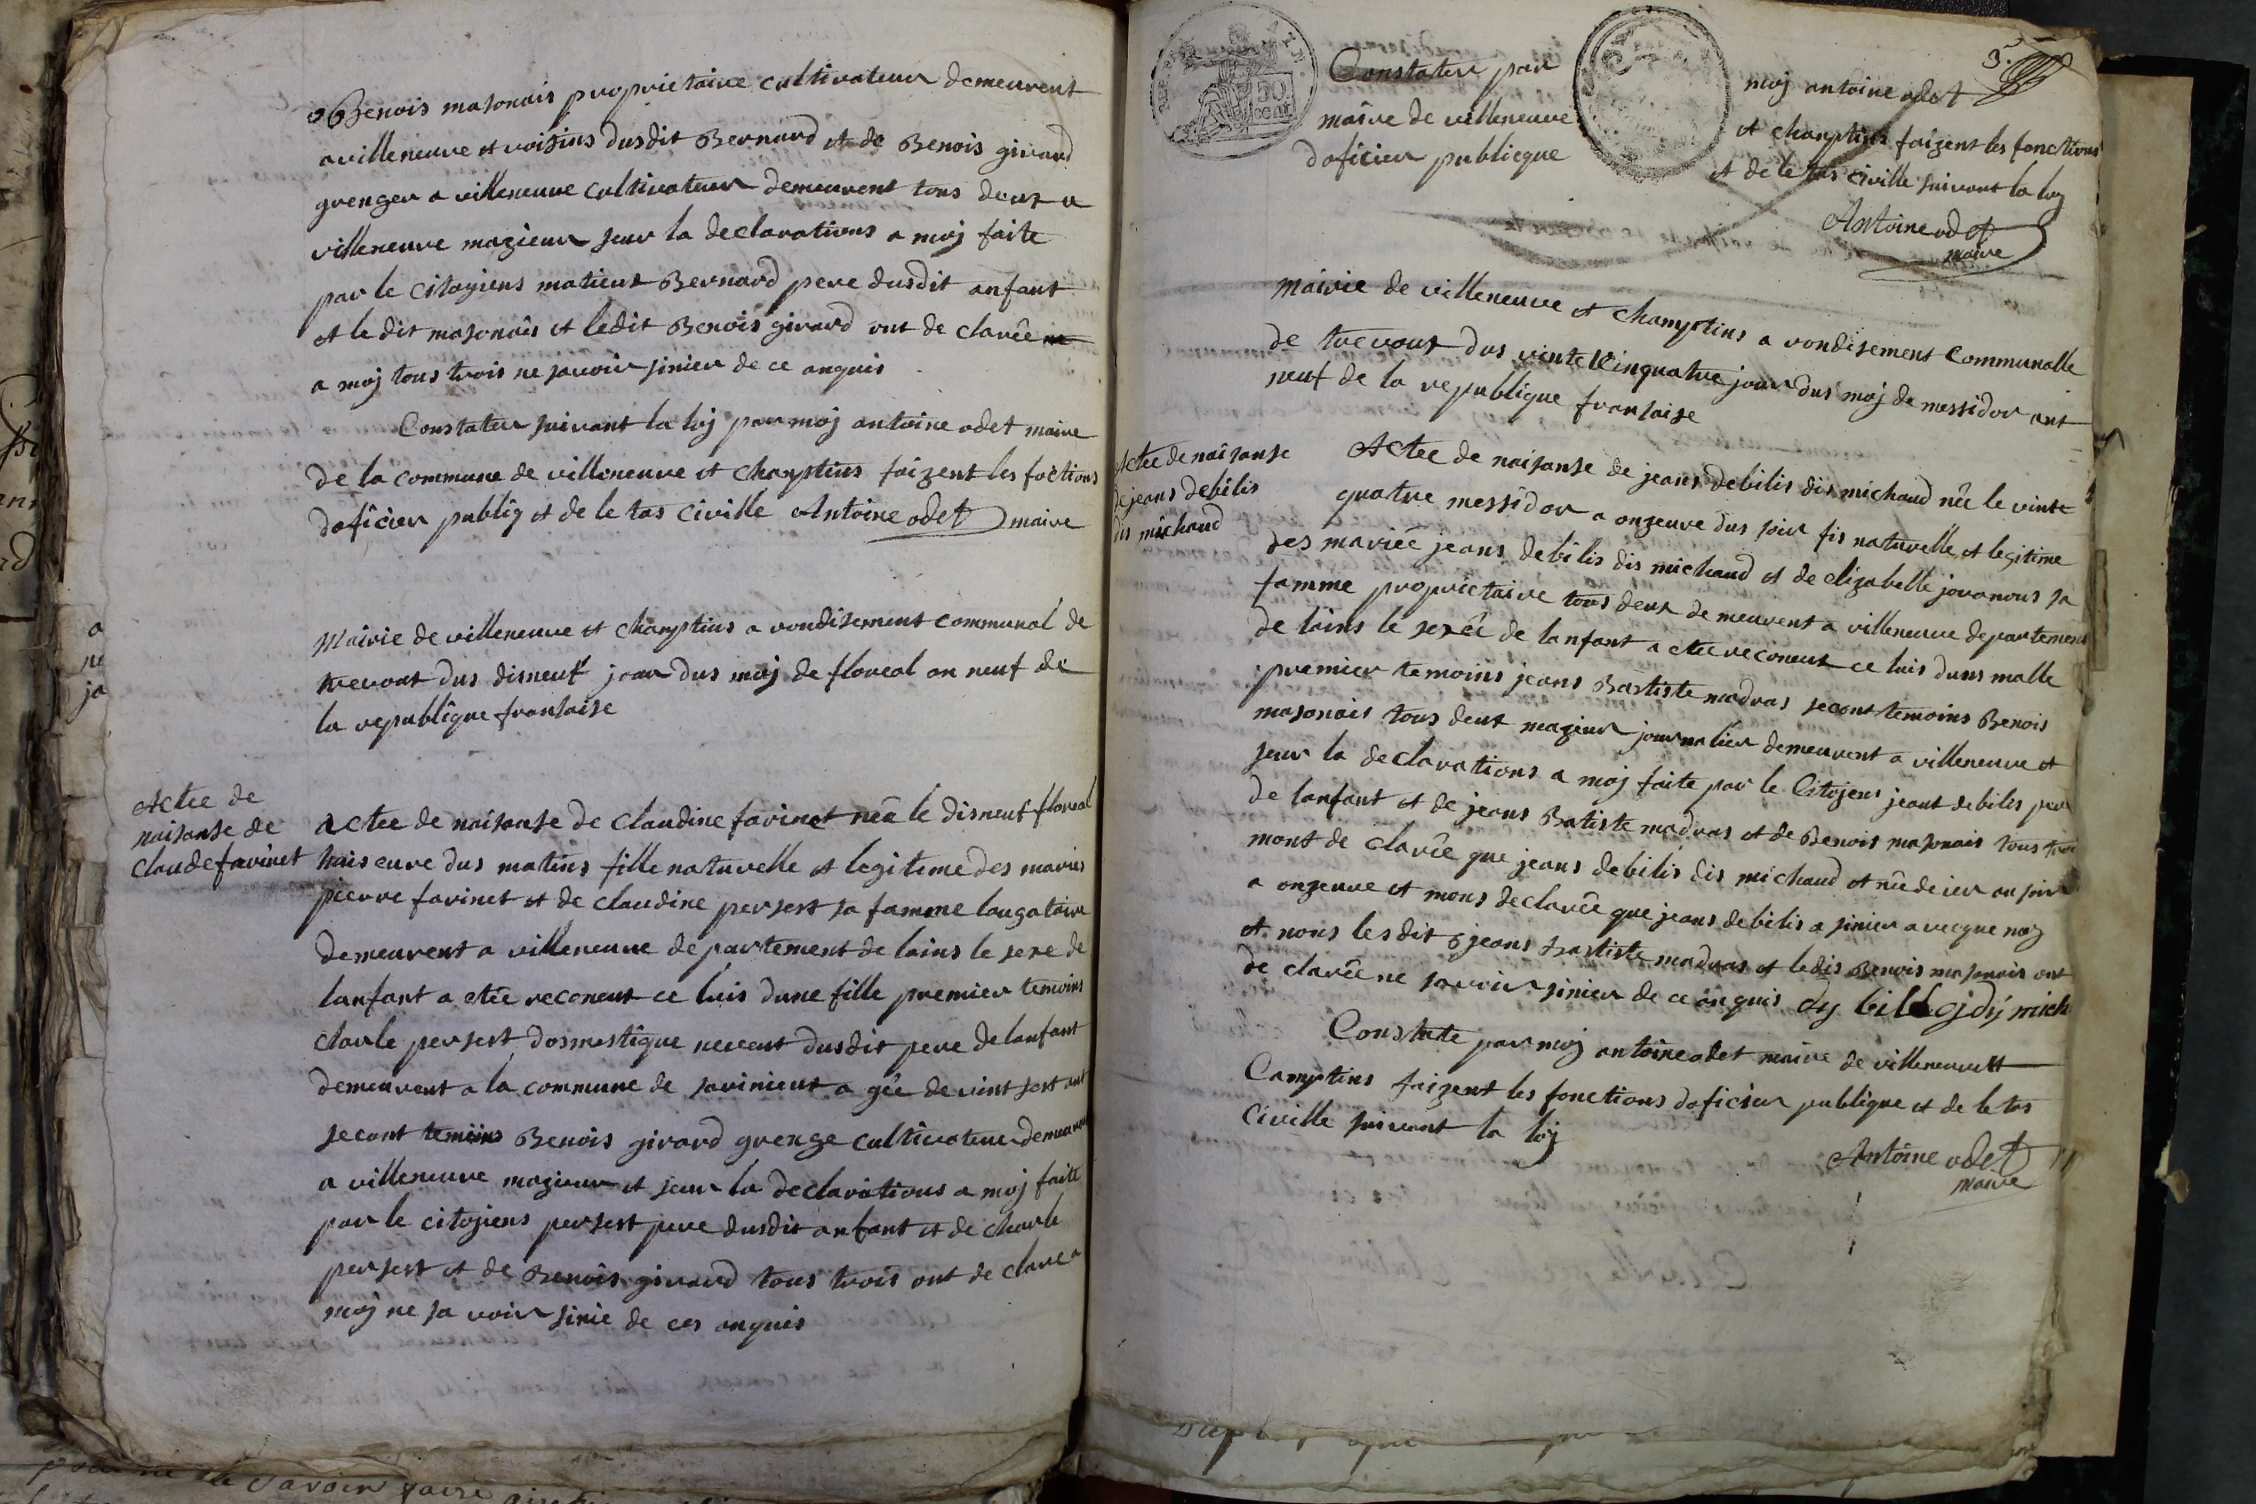 Benois masonais proprietaire cultivateur demeurent
a villeneuve et voisins dusdit Bernard et de Benois girard
grenger a villeneuve cultivateur demeurent tous deux a
villeneuve magieur seur la declarations a moj faite
par le citagiens matieut Bernard pere dusdit anfant
et le dit masonais et ledit Benois girard ont de clarêe
a moj tous trois ne savoir sinier de ce anquis
Constater suivant la loj par moj antoine odet maire
de la commune de villeneuve et chanptins faizent les foctions
doficier publiq et de le tas civille Antoine odet maire
Mairie de villeneuve et chanptins a rondisement communal de
trevout dus disneuf jour dus moj de floreal an neuf de
la republique franlaise
Actee de
naisanse de
Claude farinet
Actee de naisanse de Claudine farinet neâ le disneuf floreal
eure dus matins fille naturelle et legiteme des maries
pierre farinet et de Claudine persert sa famme
demeurent a villeneuve departement de lains le sexe de
lanfant a etée reconeut ce luis dune fille premier temoins
Charle persert dosmestique neveut dusdit pere de lanfant
demeurent a la commune de savinieut a gée de vint sest ant
secont temoins Benois girard grenge cultivateur demeurent
a villeneuve magieur et seur la declarations a moj faite
par le citojens persert pere dusdit anfant et de Charle
persert et de Benois girard tous trois ont de clare a
moj ne sa voir sinie de ces anquis
3.
Constater par moj antoine odet
maire de villeneuve et chanptins faizent les fonctions
doficier publicque et de le tas civille suivant la loj
Antoine odet
maire
Mairie de villeneuve et chanptins a rondisement Communalle
de trevout dus vinte quatre jour dus moj de messidor ant
neuf de la republique franlaise
Actee de naisanse
de jeans debilis
dis michaud
Actee de naisanse de jeans debilis dis michaud née le vinte
quatre messidor a onzeure dus soir fis naturelle et legitime
des mariée jeans debilis dis michaud et de elizabelle jovanous sa
famme proprietaire tous deux de meurent a villeneuve departement
de lains le sexée de lanfant a etée reconeut ce luis duns malle
premier temoins jeans Bastiste madras secont temoins Benois
masonais tous deux magieur journalier demeurent a villeneuve et
seur la declarations a moj faite par le Citojens jeant debiles pere
de lanfant et de jeans Batiste madras et de Benois masonais tous trois
mont de clarée que jeans debilis dis michaud et née de ier au soir
a onzeure et mons declarée que jeans debilis a sinier a vecque moj
et nous lesdit jeans bastiste madras et ledis Benois masonais ont
de clarée ne savoir sinier de ce anquis
Constate par moj antoine odet maire de villeneuve et
Camptins faizent les fonctions doficier publique et de le tas
civille suivant la loj
Antoine odet
maire